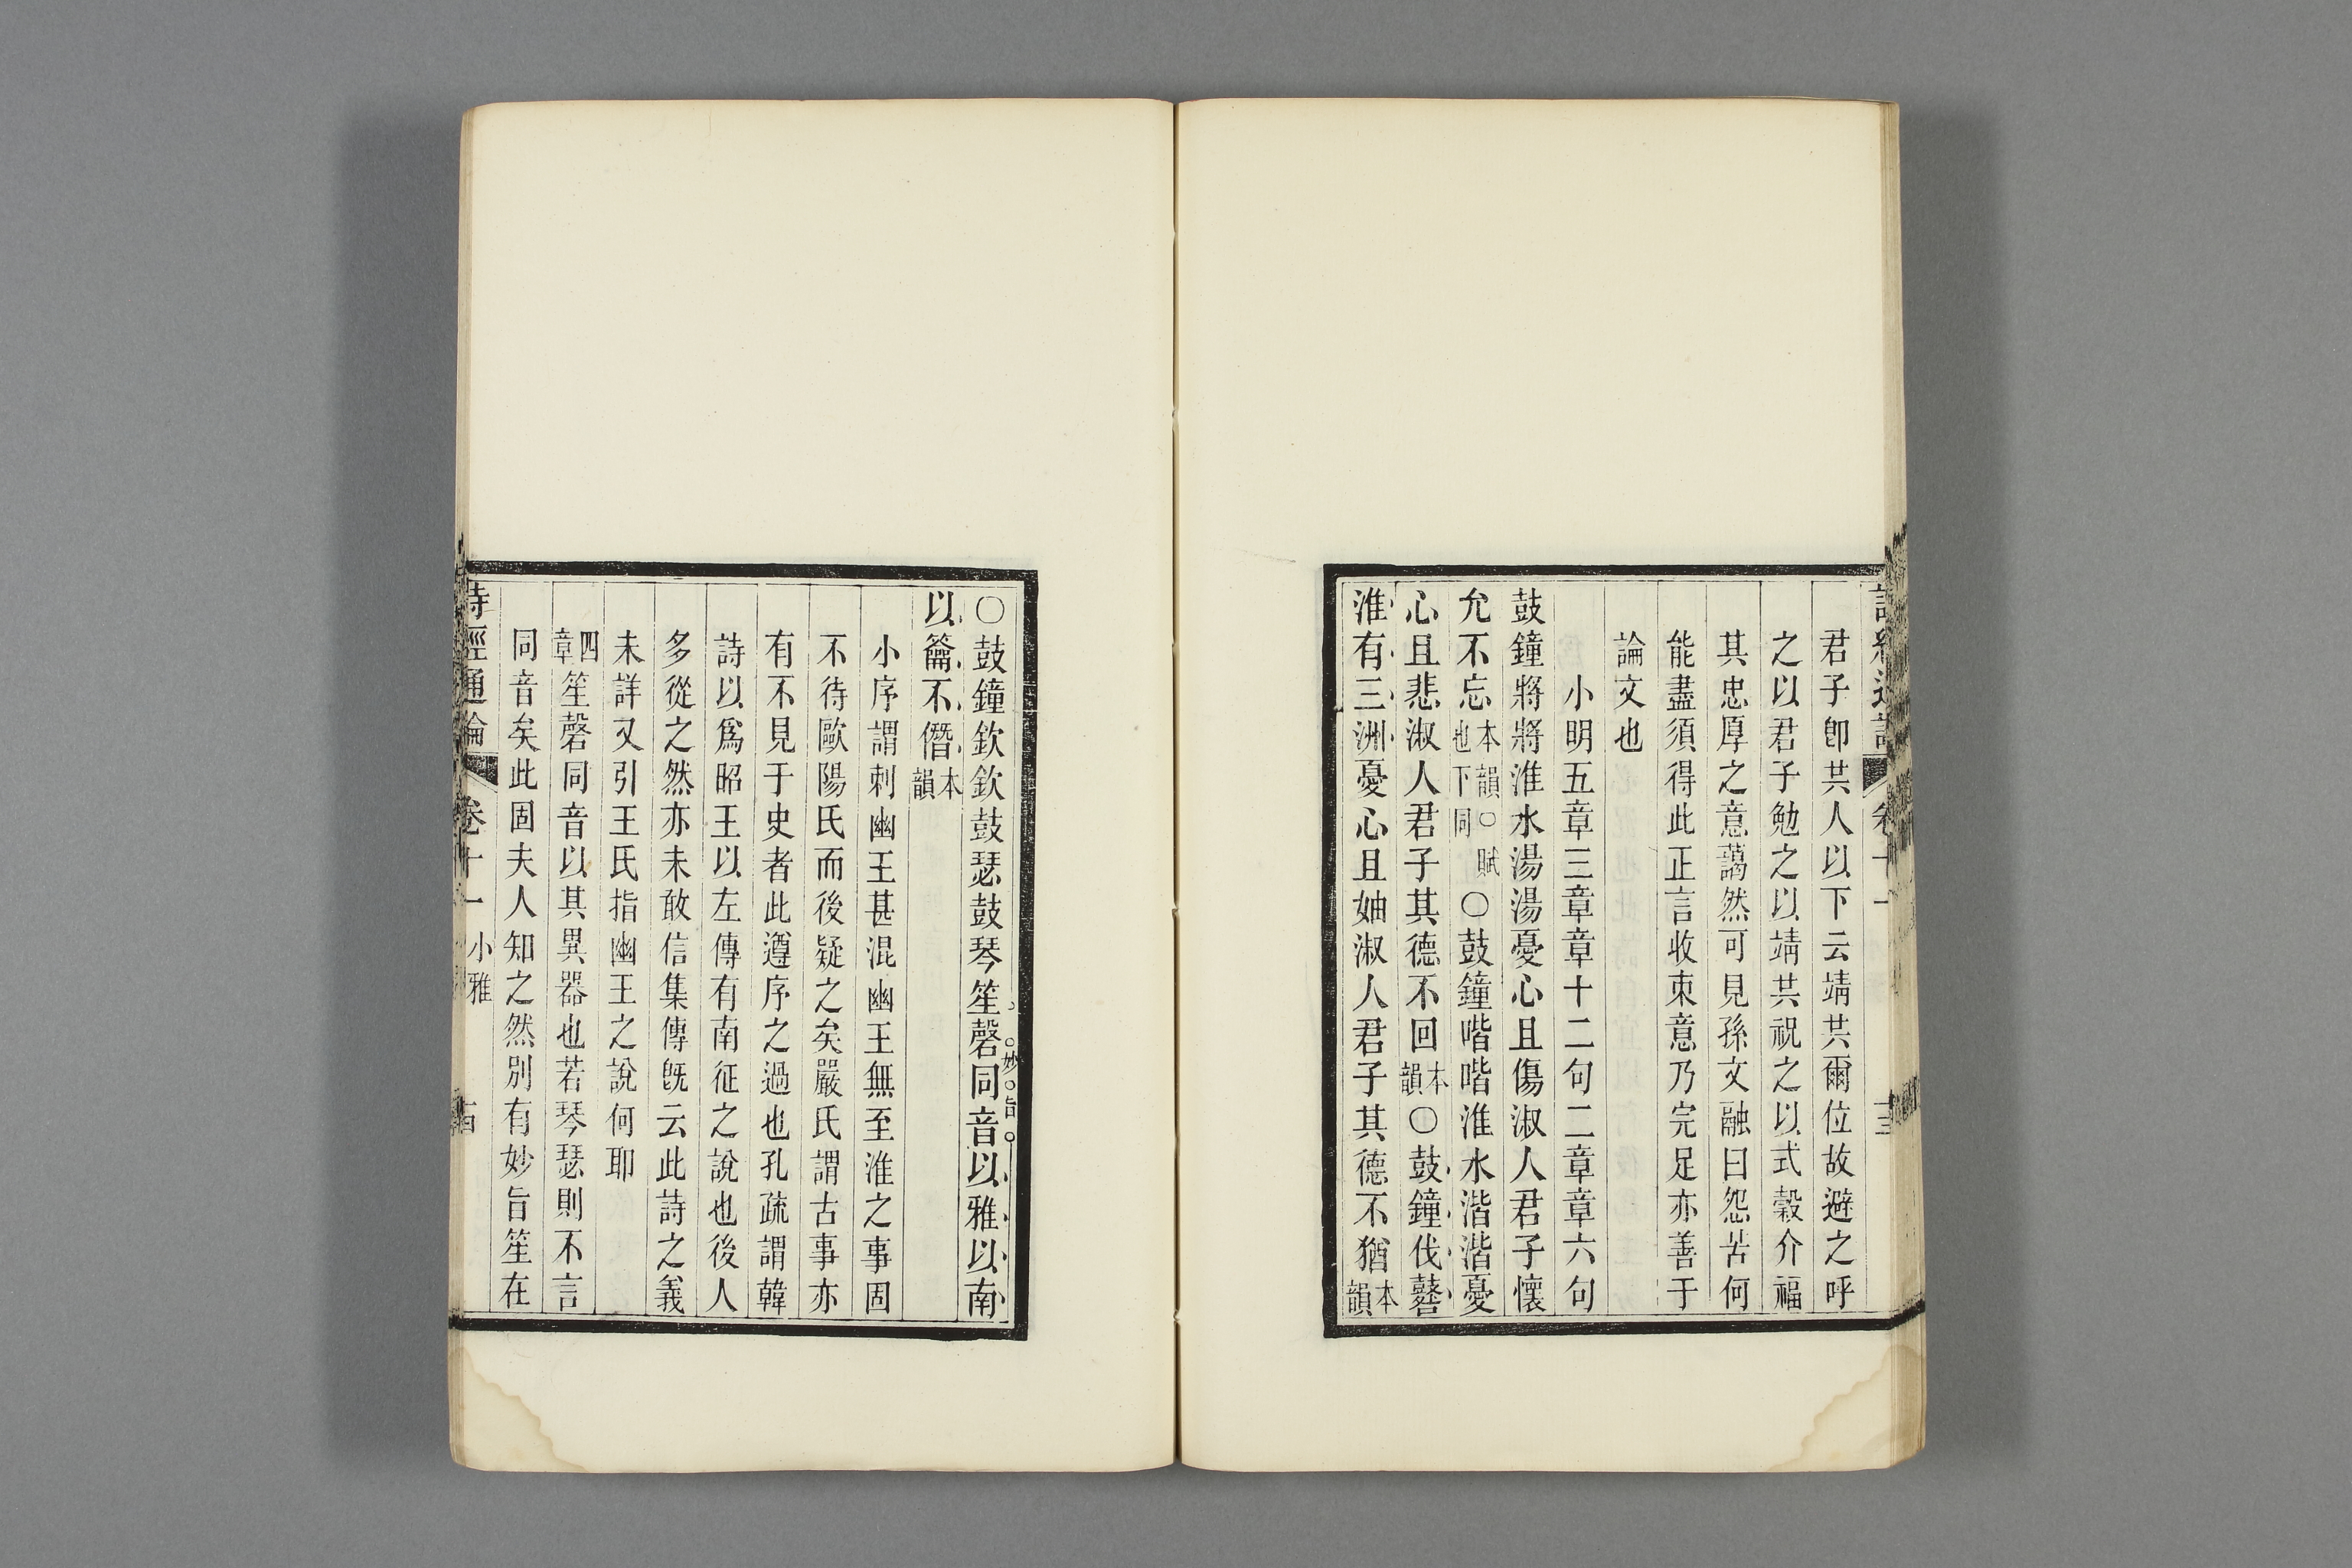 君子卽共人以下云靖共爾位故避之呼
之以君子勉之以靖共祝之以式穀介福
其忠厚之意藹然可見孫文融曰怨苦何
能盡須得此正言收束意乃完足亦善于
論文也
小明五章三章章十二句二章章六句
鼓鐘將將淮水湯湯憂心且傷淑人君子懷
允不忘本韻○賦也下同○鼓鐘喈喈淮水湝湝憂
心且悲淑人君子其德不回本韻○鼓鐘伐鼛
淮有三洲憂心且妯淑人君子其德不猶本韻
○鼓鐘欽欽鼓瑟鼓琴笙磬同音以雅以南
妙旨
以籥不僭本韻
小序謂刺幽王甚混幽王無至淮之事固
不待歐陽氏而後疑之矣嚴氏謂古事亦
有不見于史者此遵序之過也孔疏謂韓
詩以爲昭王以左傳有南征之說也後人
多從之然亦未敢信集傳旣云此詩之義
未詳又引王氏指幽王之說何耶
四章笙磬同音以其異器也若琴瑟則不言
同音矣此固夫人知之然別有妙旨笙在
詩經通論 卷十一 小雅 十四